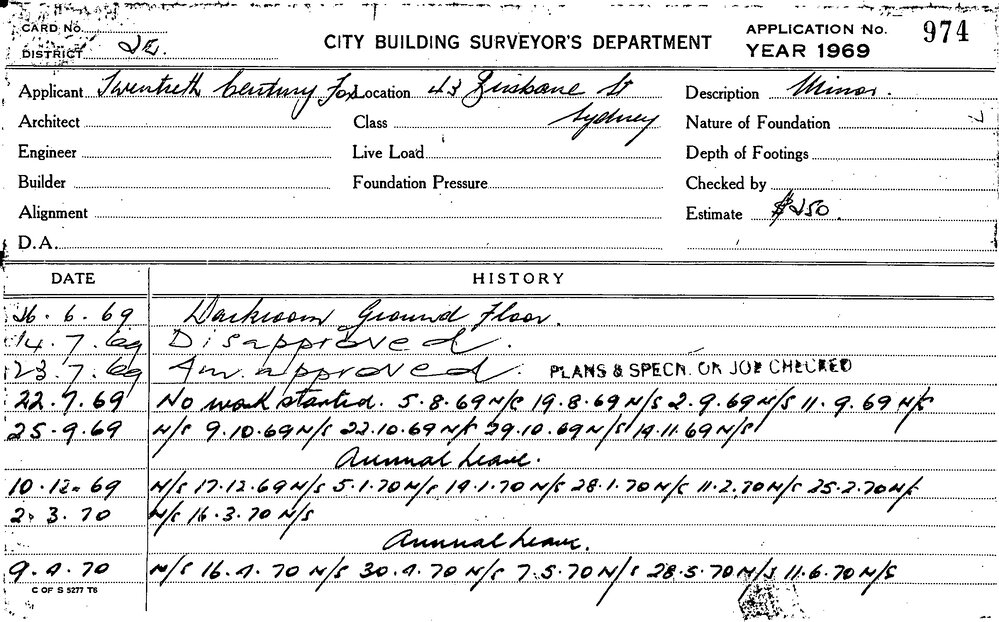 CARD No.
DISTRICT 2E.
CITY BUILDING SURVEYOR'S DEPARTMENT
APPLICATION No. 974
YEAR 1969
Applicant Twentieth Century Fox Location 43 Brisbane St Sydney Description Minor.
Architect Class Nature of Foundation
Engineer Live Load Depth of Footings
Builder Foundation Pressure Checked by
Alignment Estimate $250.
D.A.
DATE HISTORY
26.6.69 Darkroom Ground Floor.
14.7.69 Disapproved.
23.7.69 Am. approved. PLANS & SPECN. ON JOB CHECKED
22.7.69 No work started. 5.8.69 N/S 19.8.69 N/S 2.9.69 N/S 11.9.69 N/S
25.9.69 N/S 9.10.69 N/S 22.10.69 N/S 29.10.69 N/S 19.11.69 N/S
Annual Leave.
10.12.69 N/S 17.12.69 N/S 5.1.70 N/S 19.1.70 N/S 28.1.70 N/S 11.2.70 N/S 25.2.70 N/S
2.3.70 N/S 16.3.70 N/S
Annual Leave.
9.4.70 N/S 16.4.70 N/S 30.4.70 N/S 7.5.70 N/S 28.5.70 N/S 11.6.70 N/S
C OF S 5277 T6